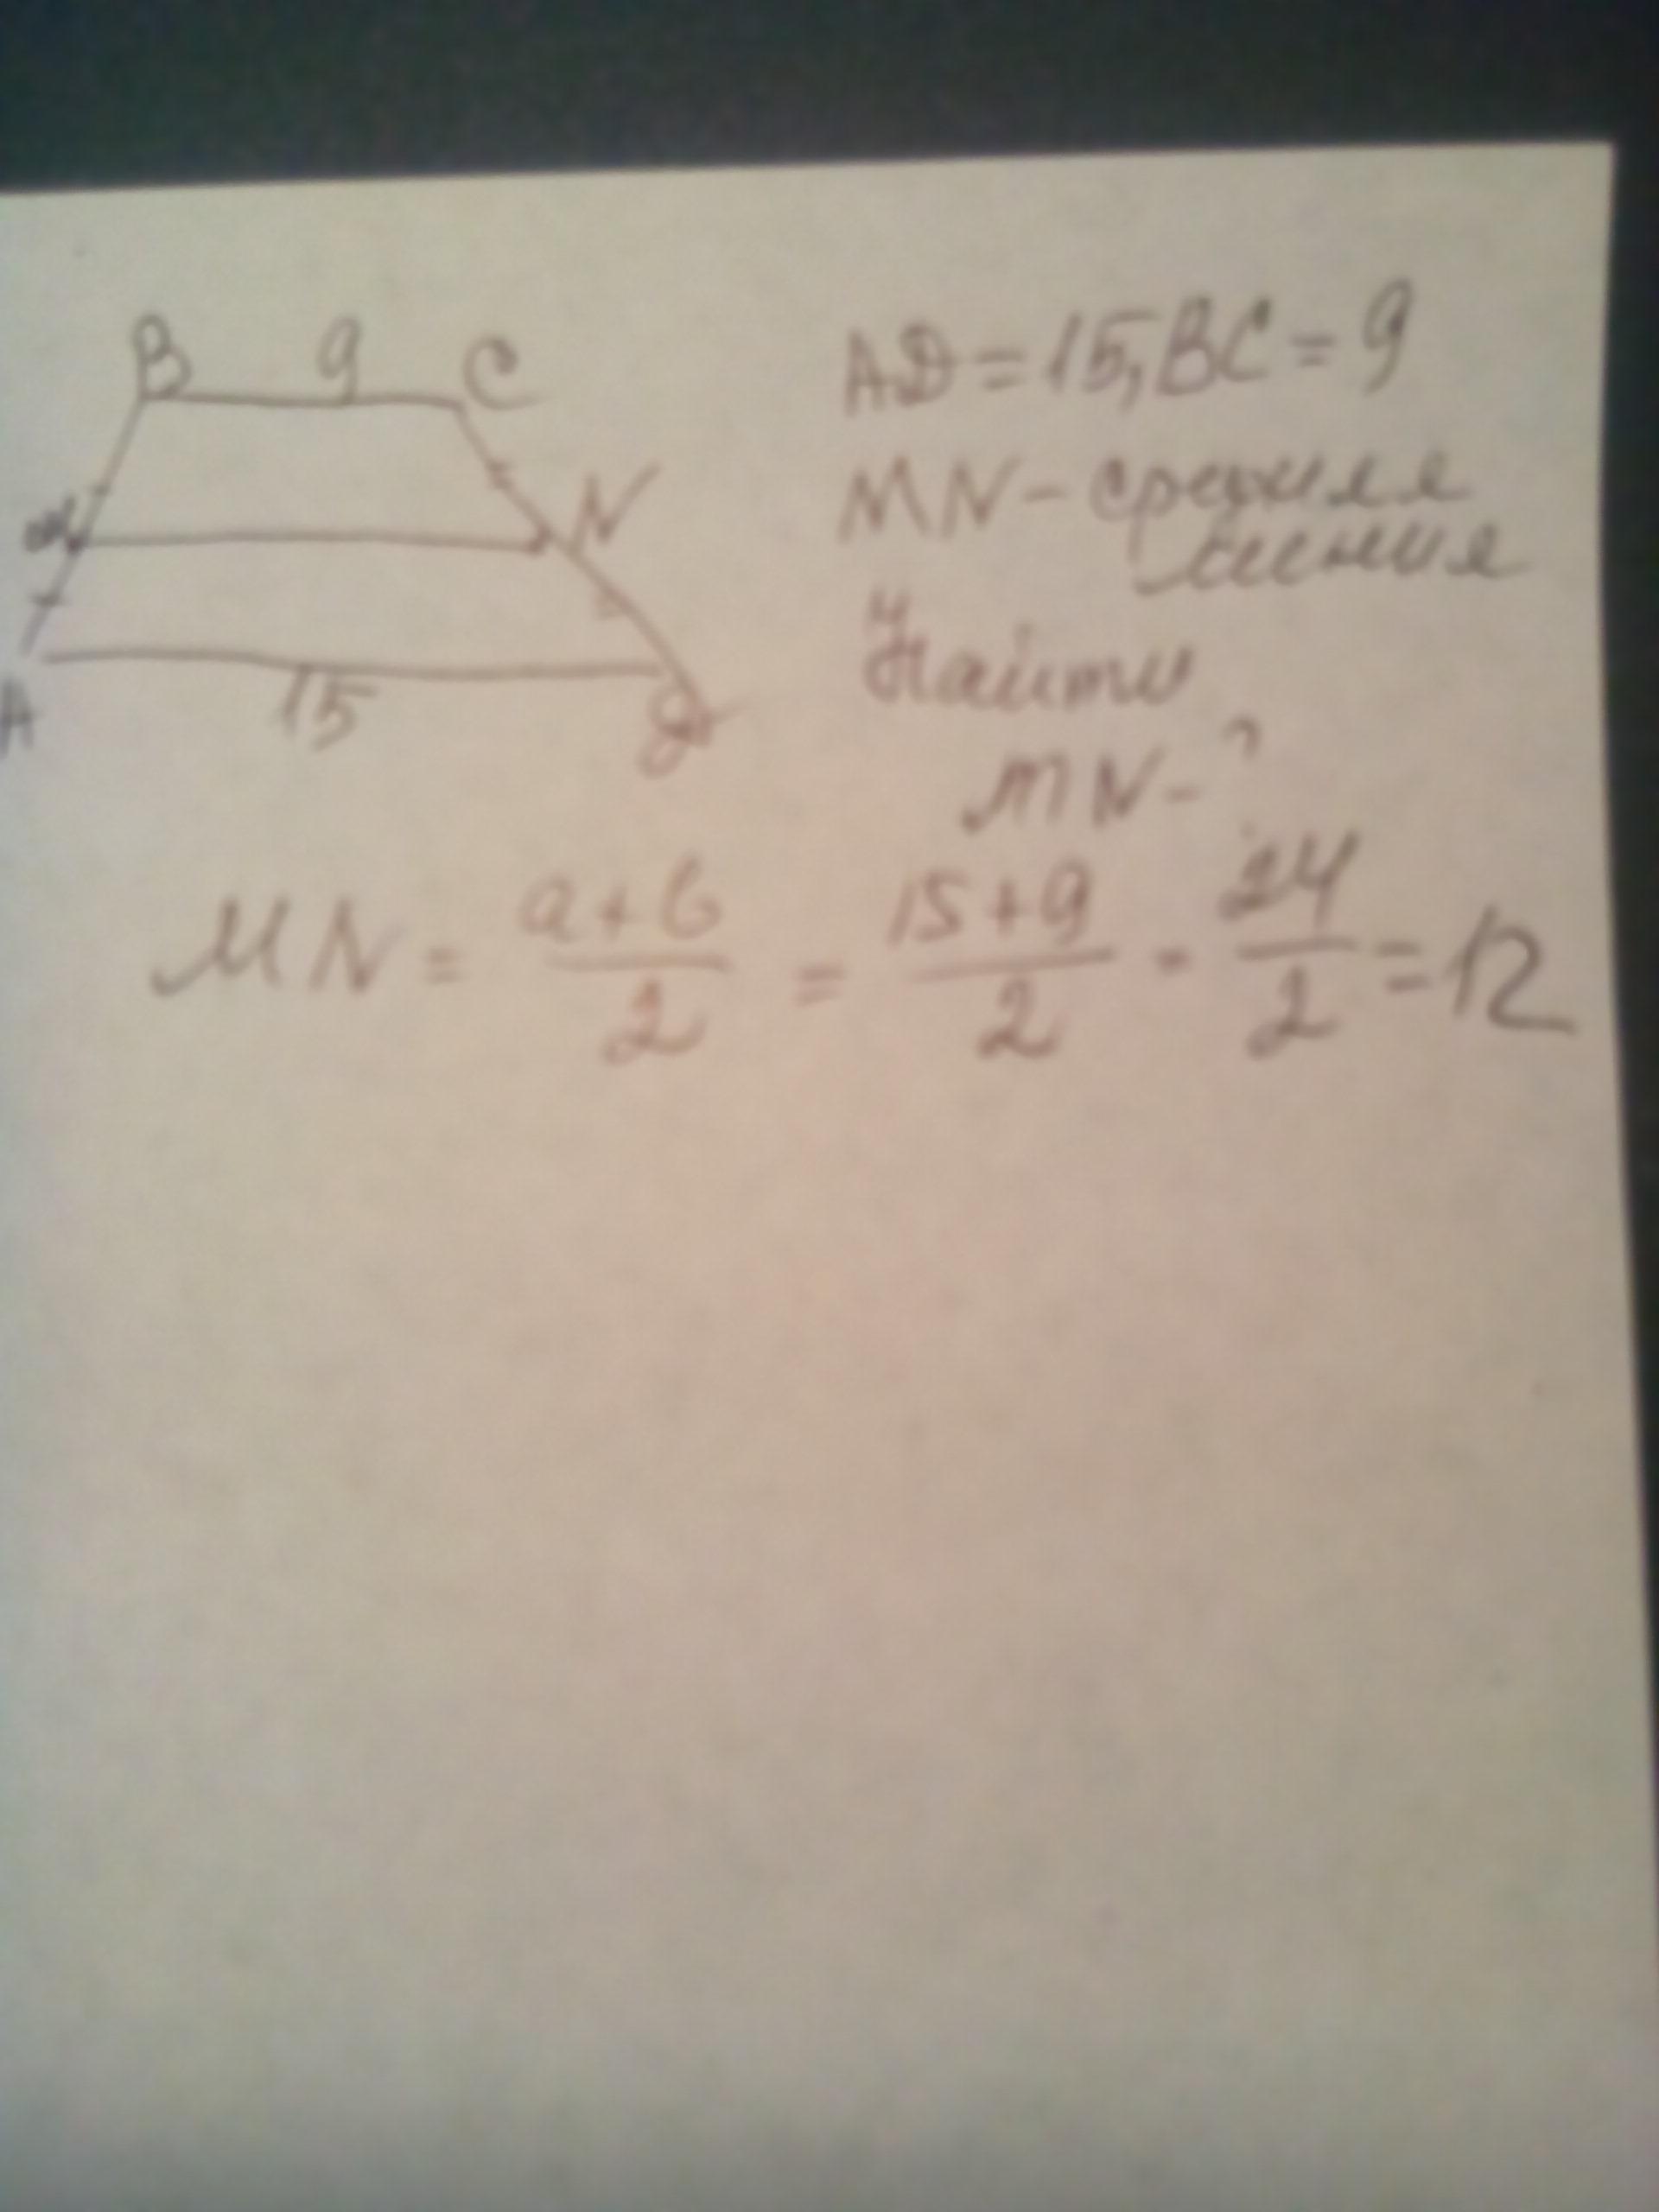 B 9 C
M N
A 15 D
AD = 15, BC = 9
MN - средняя
линия
Найти
MN - ?
MN = a+b/2 = 15+9/2 = 24/2 = 12